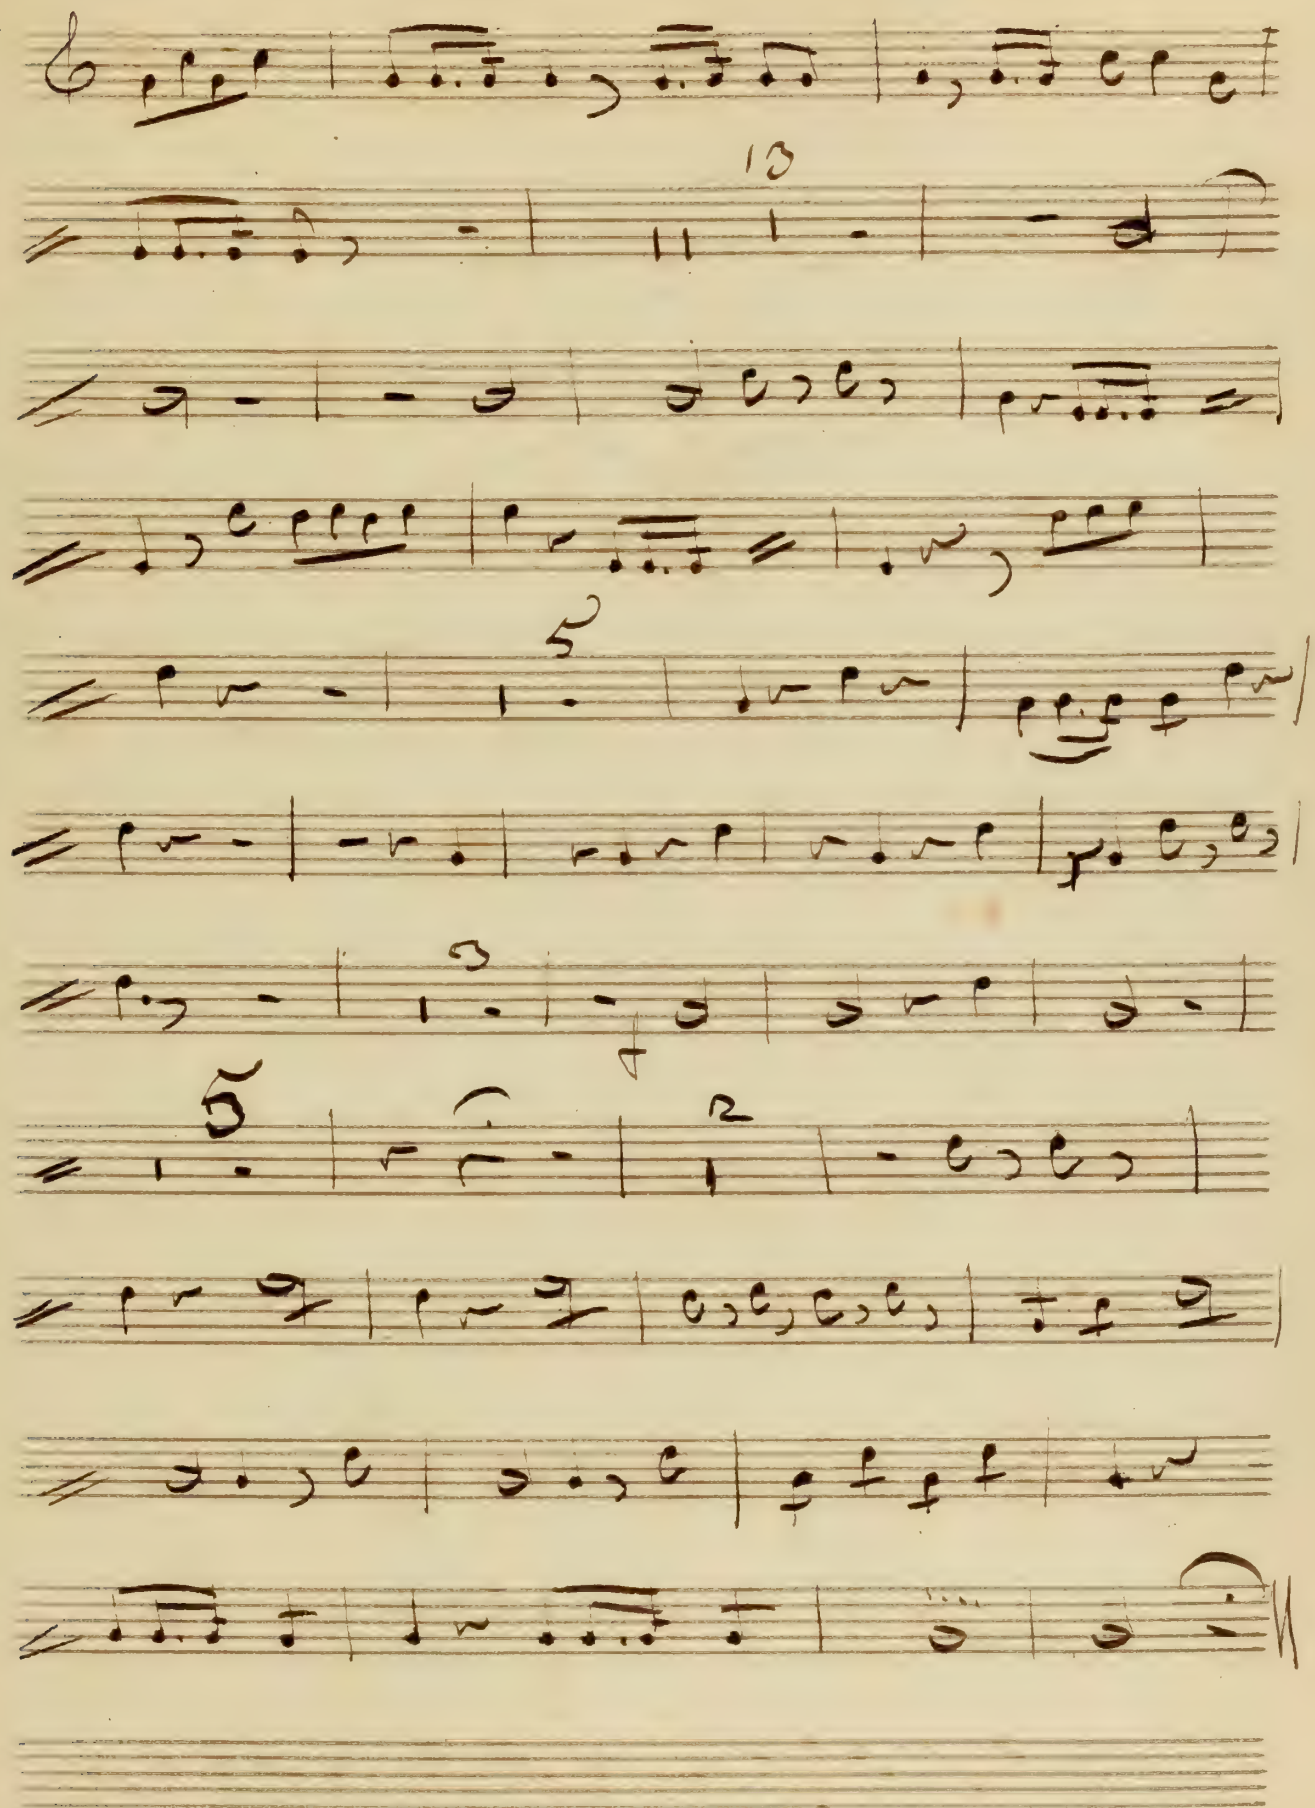 13
5
3
f
5
2